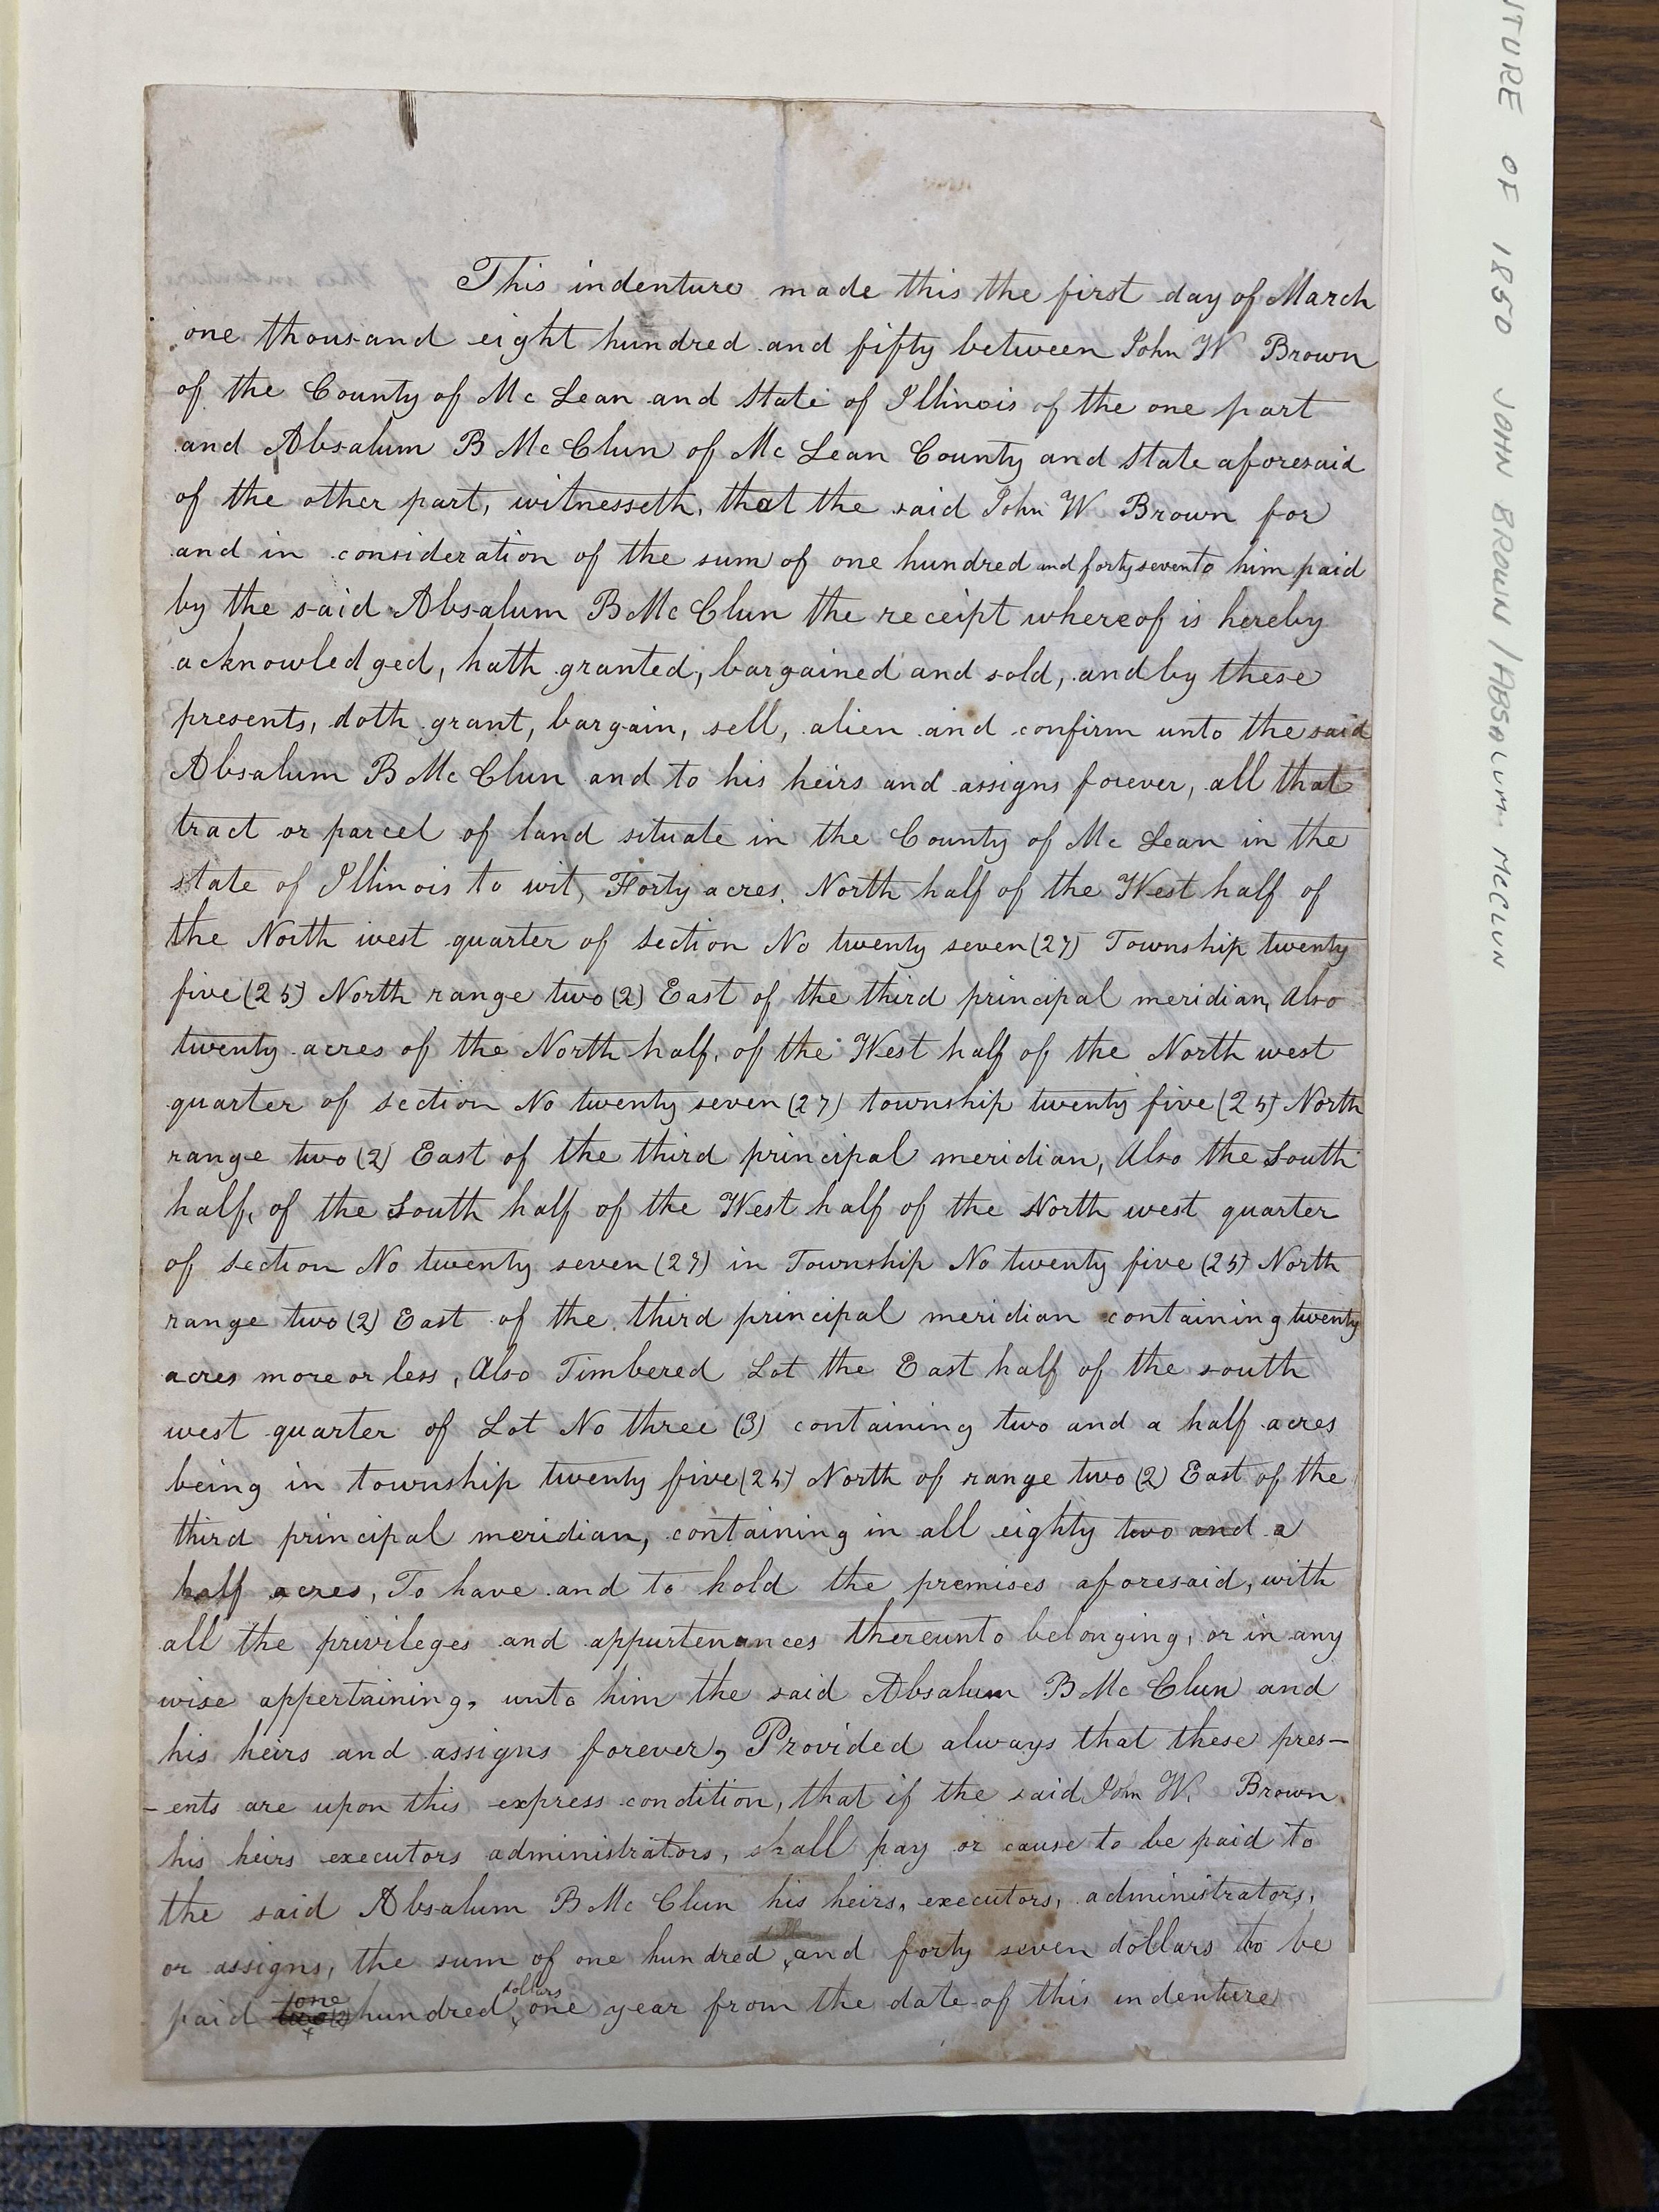 This indenture made this the first day of March
one thousand eight hundred and fifty between John W Brown
of the County of Mc Lean and State of Illinois of the one part
and Absalum B Mc Clun of Mc Lean County and State aforesaid
of the other part, witnesseth, that the said John W Brown for
and in consideration of the sum of one hundred and forty seven to him paid
by the said Absalum B Mc Clun the receipt whereof is hereby
acknowledged, hath granted, bargained and sold, and by these
presents, doth grant, bargain, sell, alien and confirm unto the said
Absalum B Mc Clun and to his heirs and assigns forever, all that
tract or parcel of land situate in the County of Mc Lean in the
state of Illinois to wit, Forty acres. North half of the West half of
the North west quarter of section No twenty seven (27) Township twenty
five (25) North range two (2) East of the third principal meridian, Also
twenty acres of the North half, of the West half of the North west
quarter of section No twenty seven (27) township twenty five (25) North
range two (2) East of the third principal meridian, Also the South
half, of the South half of the West half of the North west quarter
of section No twenty seven (27) in Township No twenty five (25) North
range two (2) East of the third principal meridian containing twenty
acres more or less, Also Timbered Lot the East half of the south
west quarter of Lot No three (3) containing two and a half acres
being in township twenty five (25) North of range two (2) East of the
third principal meridian, containing in all eighty two and a
half acres, To have and to hold the premises aforesaid, with
all the privileges and appurtenances thereunto belonging, or in any
wise appertaining, unto him the said Absalum B Mc Clun and
his heirs and assigns forever, Provided always that these pres-
-ents are upon this express condition, that if the said John W. Brown
his heirs executors administrators, shall pay or cause to be paid to
the said Absalum B Mc Clun his heirs, executors, administrators,
or assigns, the sum of one hundred and forty seven dollars to be
paid one hundred dollars one year from the date of this indenture
TURE OF 1850 JOHN BROWN / ABSALUM MCCLUN